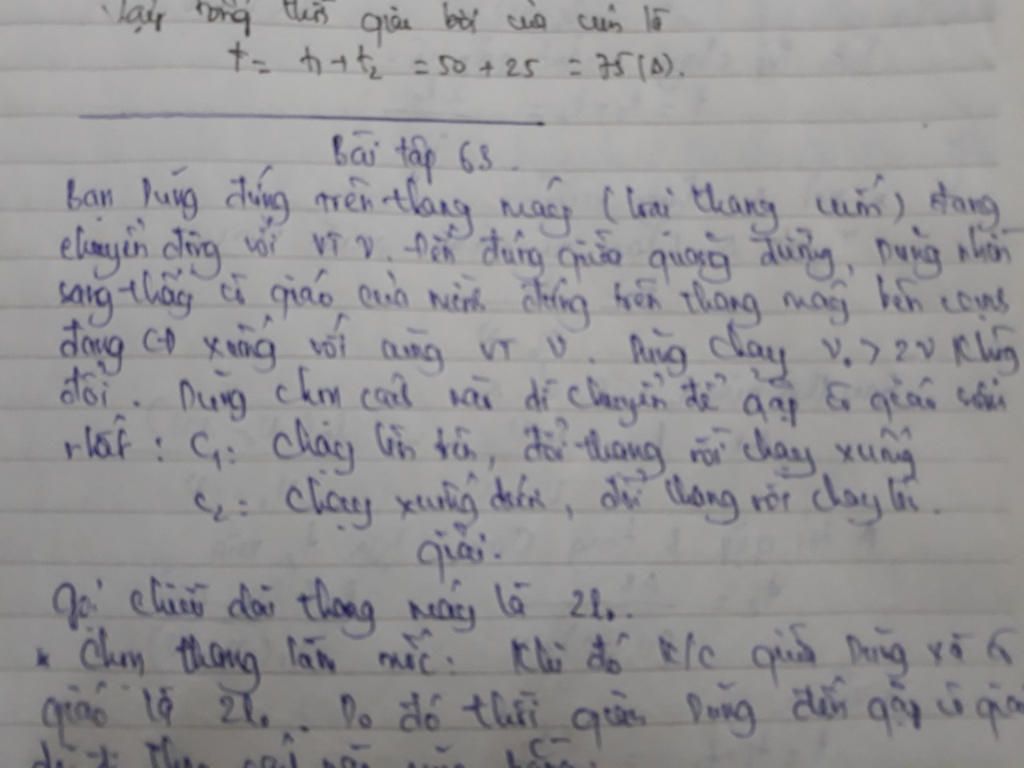 thời gian bơi của cụm là
t = t1 + t2 = 50 + 25 = 75 (s).
Bài tập 63.
Bạn Dũng đứng trên thang máy (loại thang cuốn) đang
chuyển động với VT v. Đến đúng giữa quãng đường, Dũng nhìn
sang thấy cô giáo của mình đứng trên thang máy bên cạnh
đang CĐ xuống với cùng VT v. Dũng chạy v. > 2v không
đổi. Dũng chọn cách nào di chuyển để gặp cô giáo sớm
nhất: C1: Chạy lên trên, đổi thang rồi chạy xuống
C2: Chạy xuống dưới, đổi thang rồi chạy lên.
giải.
Gọi chiều dài thang máy là 2l..
* Chọn thang làm mốc: Khi đó K/C giữa Dũng và cô
giáo là 2l.. Do đó thời gian Dũng đến gặp cô giáo